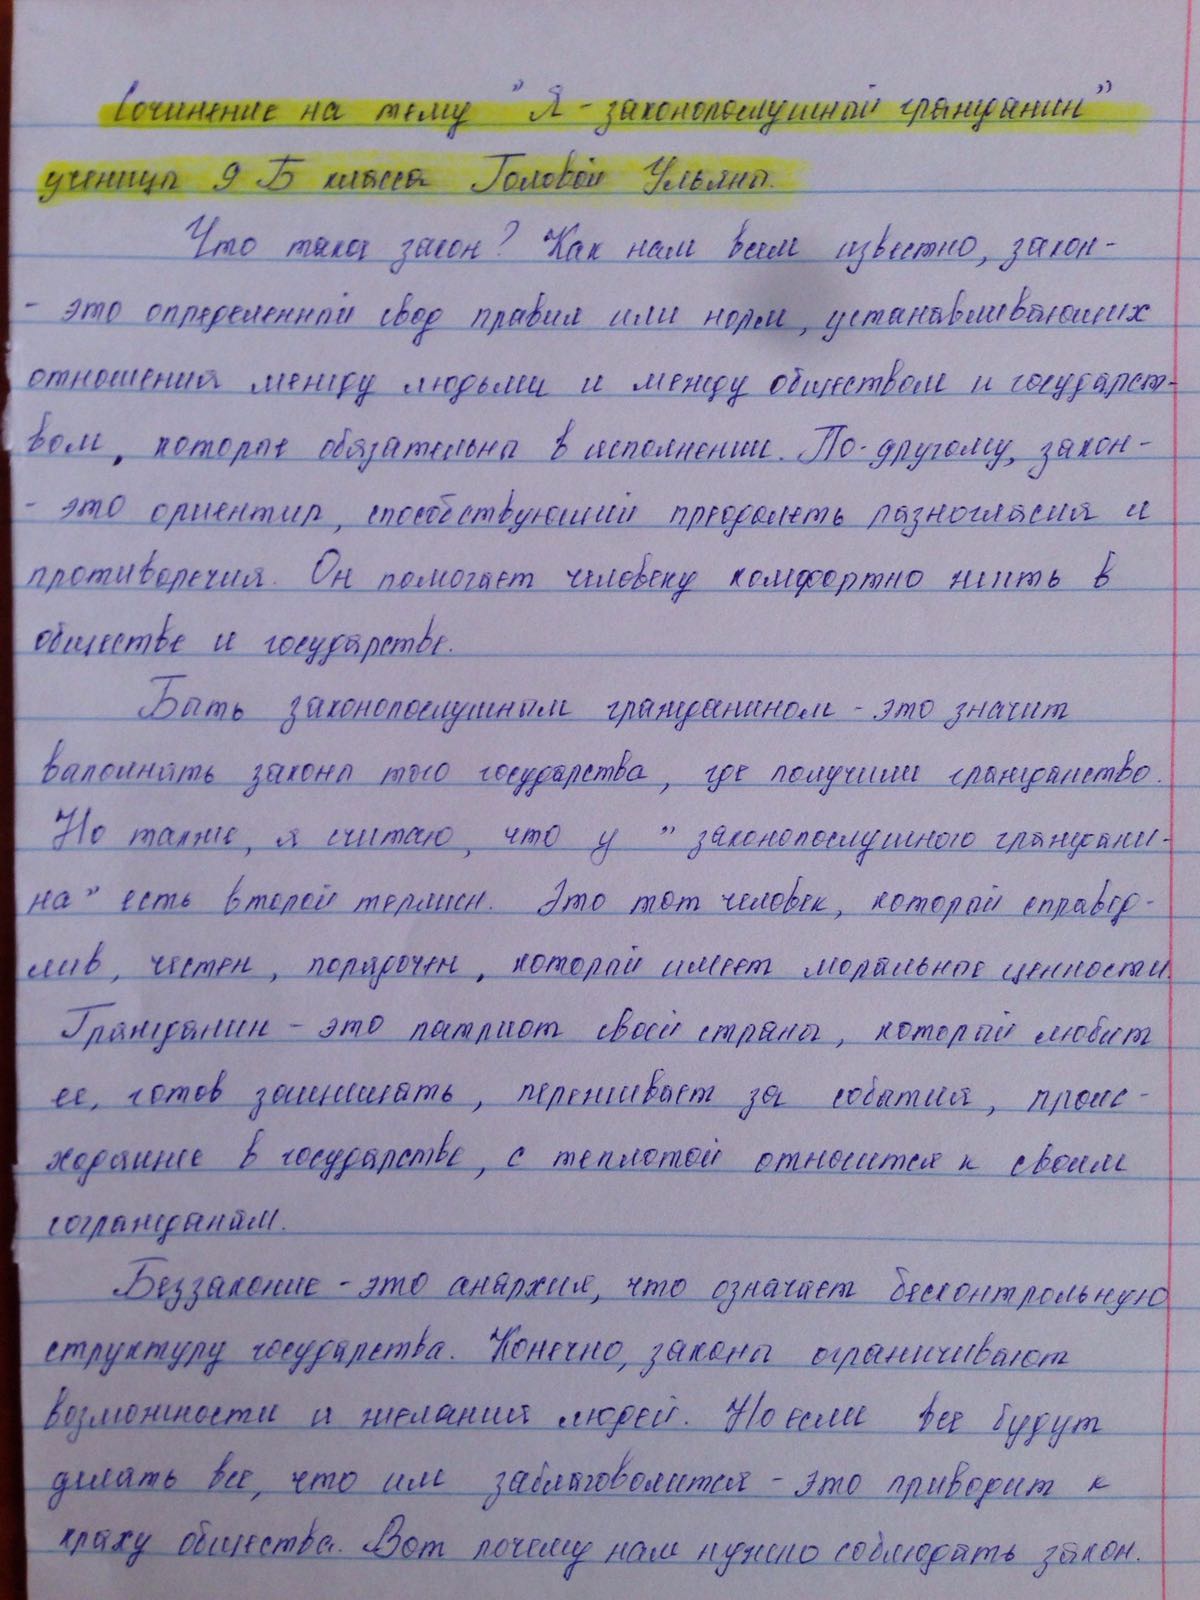 Сочинение на тему "Я - законопослушный гражданин"
ученицы 9 Б класса Головой Ульяны.
Что такое закон? Как нам всем известно, закон-
- это определенный свод правил или норм, устанавливающих
отношения между людьми и между обществом и государст-
вом, которые обязательны в исполнении. По-другому, закон-
- это ориентир, способствующий преодолеть разногласия и
противоречия. Он помогает человеку комфортно жить в
обществе и государстве.
Быть законопослушным гражданином - это значит
выполнять законы того государства, где получили гражданство.
Но также, я считаю, что у "законопослушного граждани-
на" есть второй термин. Это тот человек, который справед-
лив, честен, порядочен, который имеет моральные ценности.
Гражданин - это патриот своей страны, который любит
ее, готов защищать, переживает за события, проис-
ходящие в государстве, с теплотой относится к своим
согражданам.
Беззаконие - это анархия, что означает бесконтрольную
структуру государства. Конечно, законы ограничивают
возможности и желания людей. Но если все будут
делать все, что им заблаговолится - это приводит к
краху общества. Вот почему нам нужно соблюдать закон.